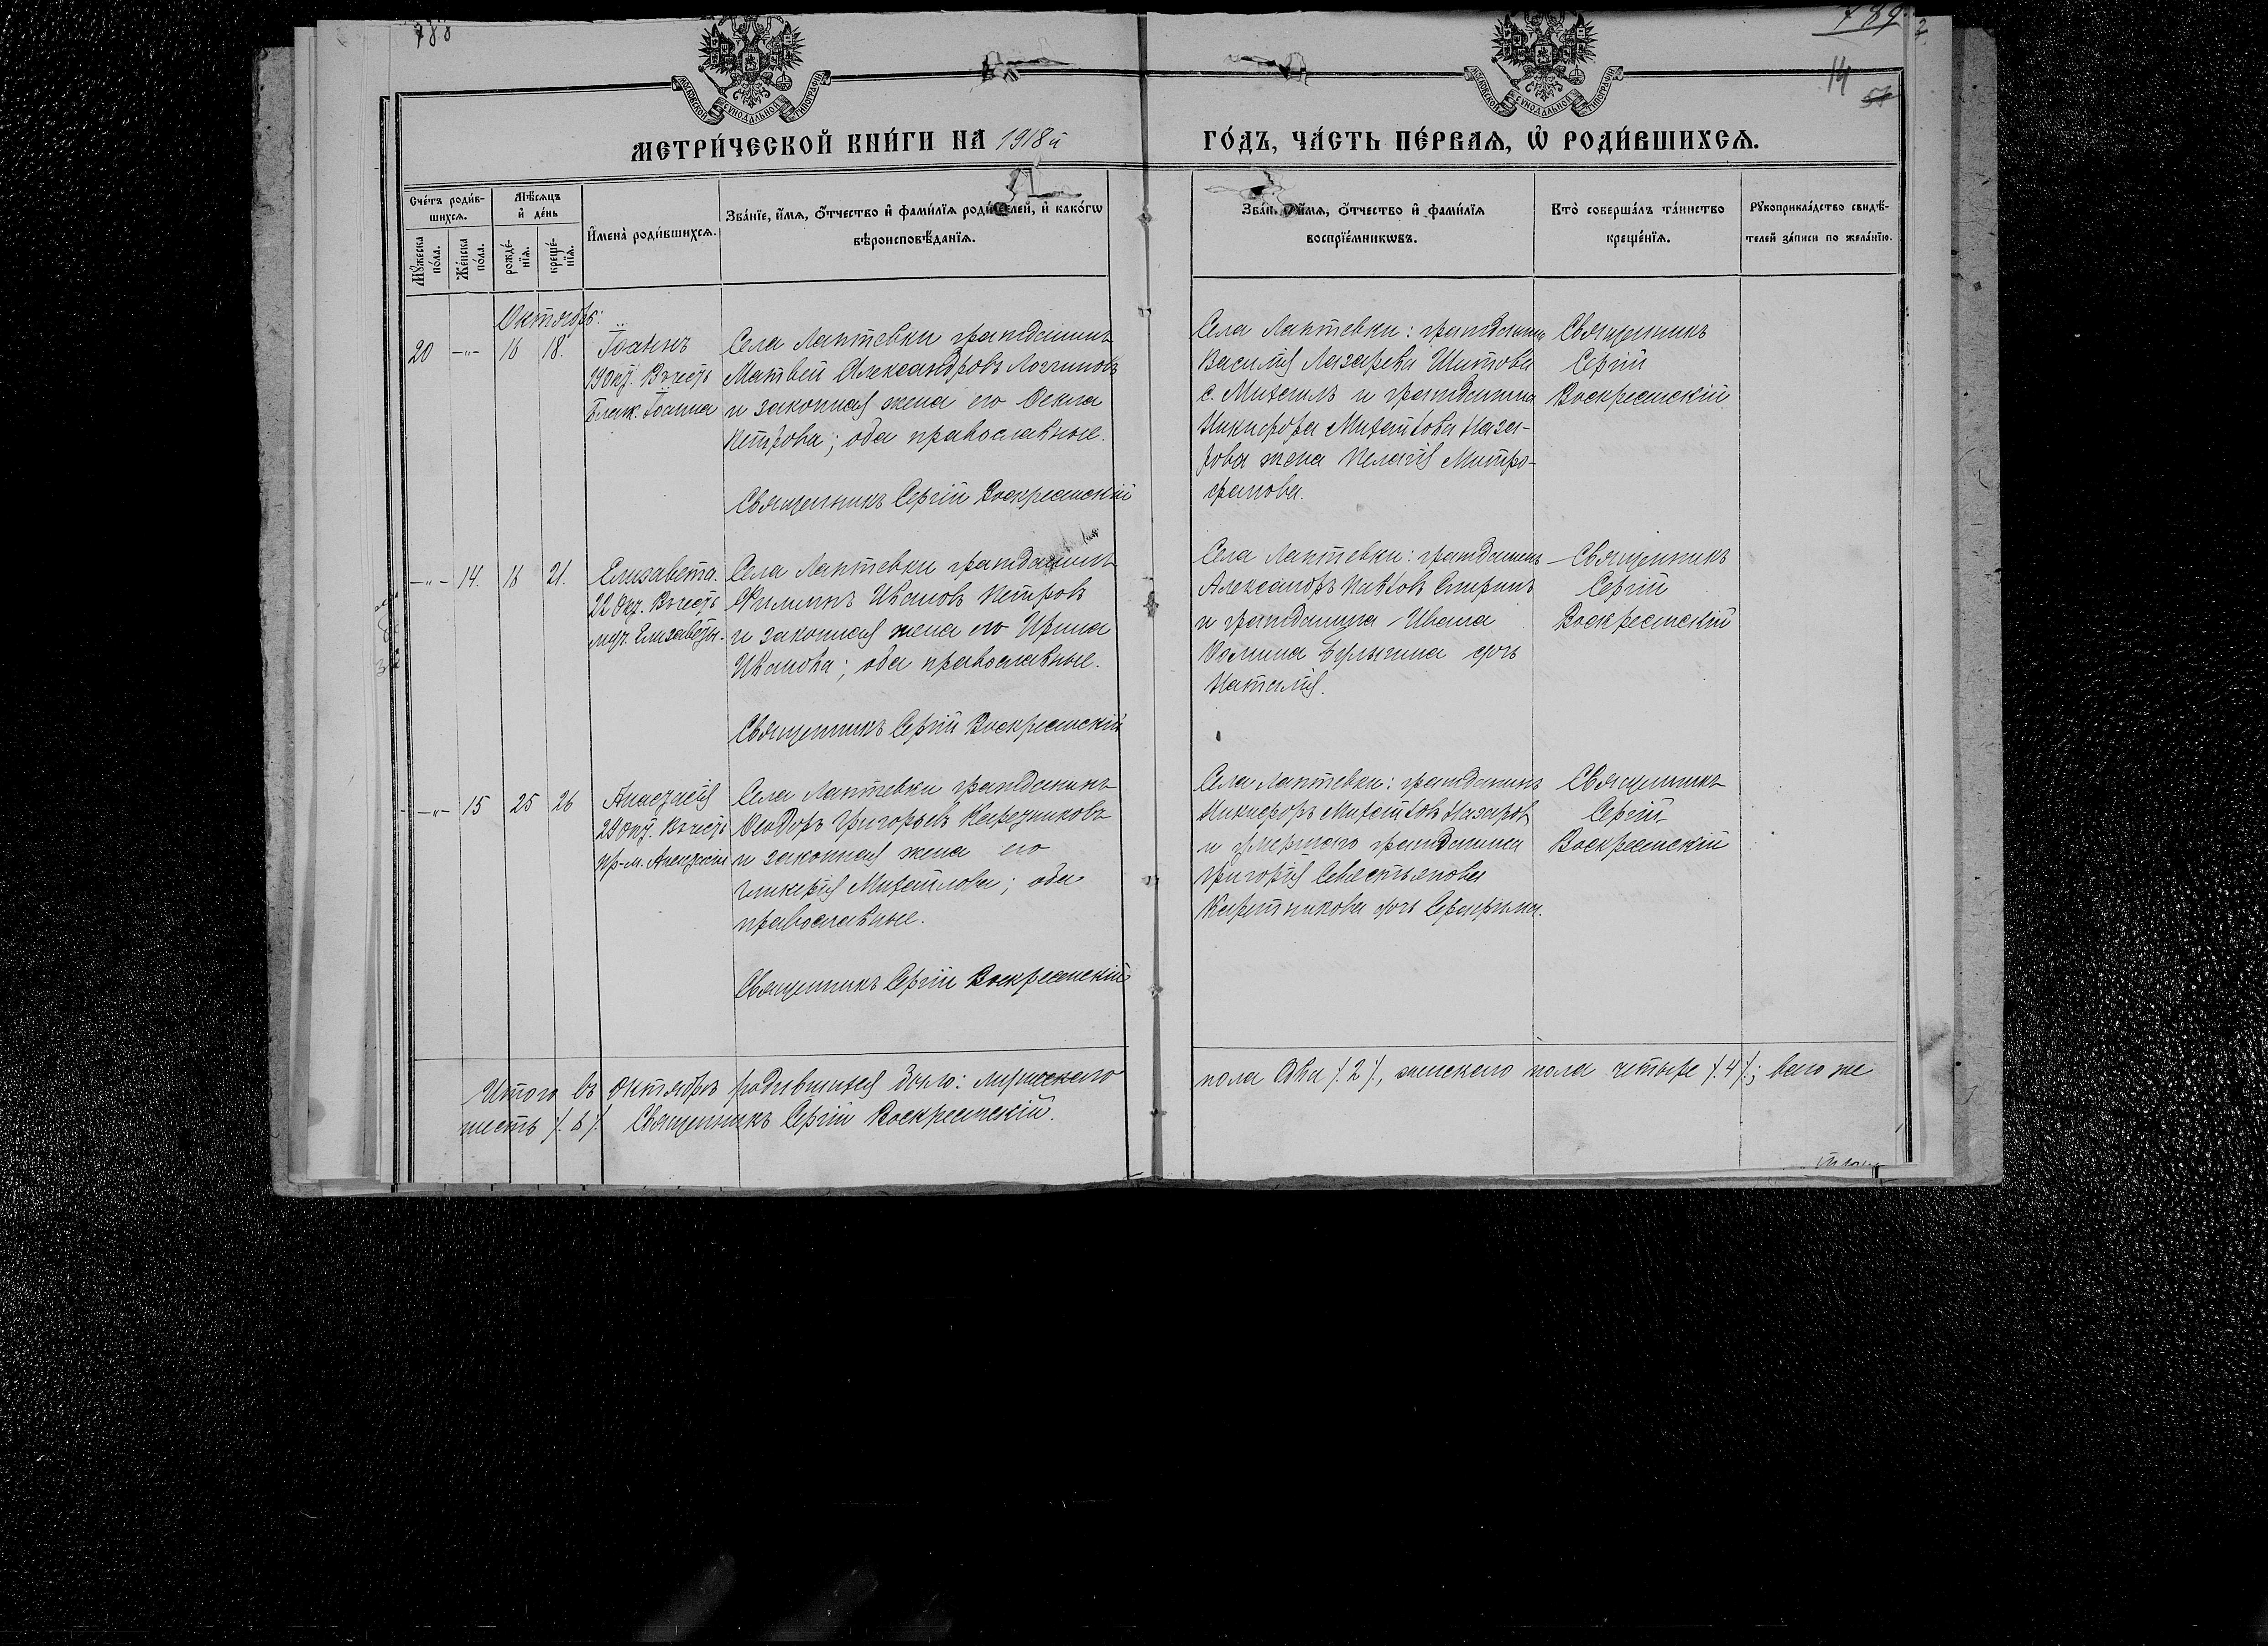 788
789.
14
МЕТРИ́ЧЕСКОЙ КНИ́ГИ НА 1918й
ГО́ДЪ, ЧА́СТЬ ПЕ́РВАЯ, Ѡ҆ РОДИ́ВШИХСЯ.
Сче́тъ роди́в-
шихся.
Мѣ́сяцъ
и҆ де́нь
И҆мена̀ роди́вшихся.
Зва́нїе, и҆́мя, ѻ҆́тчество и҆ фами́лїя роди́телей, и҆ како́гѡ
вѣроисповѣ́данїя.
Мꙋ́жеска
по́ла.
Же́нска
по́ла.
рожде́-
нїя.
креще́-
нїя.
Зва́н. и҆́мя, ѻ҆́тчество и҆ фами́лїя
воспрїе́мникѡвъ.
Кто̀ соверша́лъ та́инство
креще́нїя.
Рꙋкоприкла́дство свидѣ́-
телей за́писи по жела́нїю.
Октябрь:
20 —"— 16 18.
Іоаннъ
19 Окт. Въ честь
Блаж. Іоанна
Села Лаптевки гражданинъ
Матвей Александровъ Логиновъ
и законная жена его Ѳекла
Петрова; оба православные.
Священникъ Сергій Воскресенскій
Села Лаптевки: гражданина
Василія Лазарева Шитова
с. Михаилъ и гражданина
Никифора Михайлова Наза-
рова жена Пелагія Митро-
фанова.
Священникъ
Сергій
Воскресенскій
—"— 14. 18 21.
Елизавета.
22 Окт. Въ честь
муч. Елизаветы.
Села Лаптевки гражданинъ
Филиппъ Ивановъ Петровъ
и законная жена его Ирина
Иванова; оба православные.
Священникъ Сергій Воскресенскій
Села Лаптевки: гражданинъ
Александръ Спиринъ
и гражданина Ивана
Ѳомина Булыгина дочь
Наталія.
Священникъ
Сергій
Воскресенскій
—"— 15 25 26
Анастасія
29 Окт. Въ честь
пр-м. Анастасіи
Села Лаптевки гражданинъ
Ѳеодоръ Григорьевъ Каретниковъ
и законная жена его
Гликерія Михайлова; оба
православные.
Священникъ Сергій Воскресенскій
Села Лаптевки: гражданинъ
Никифоръ Михайловъ Назаровъ
и умершаго гражданина
Григорія Севастьянова
Каретникова дочь Серафима.
Священникъ
Сергій
Воскресенскій
Итого въ Октябрѣ родившихся было: мужескаго
пола два /.2/., женскаго пола четыре /.4/.; всего же
шесть /.6/. Священникъ Сергій Воскресенскій.